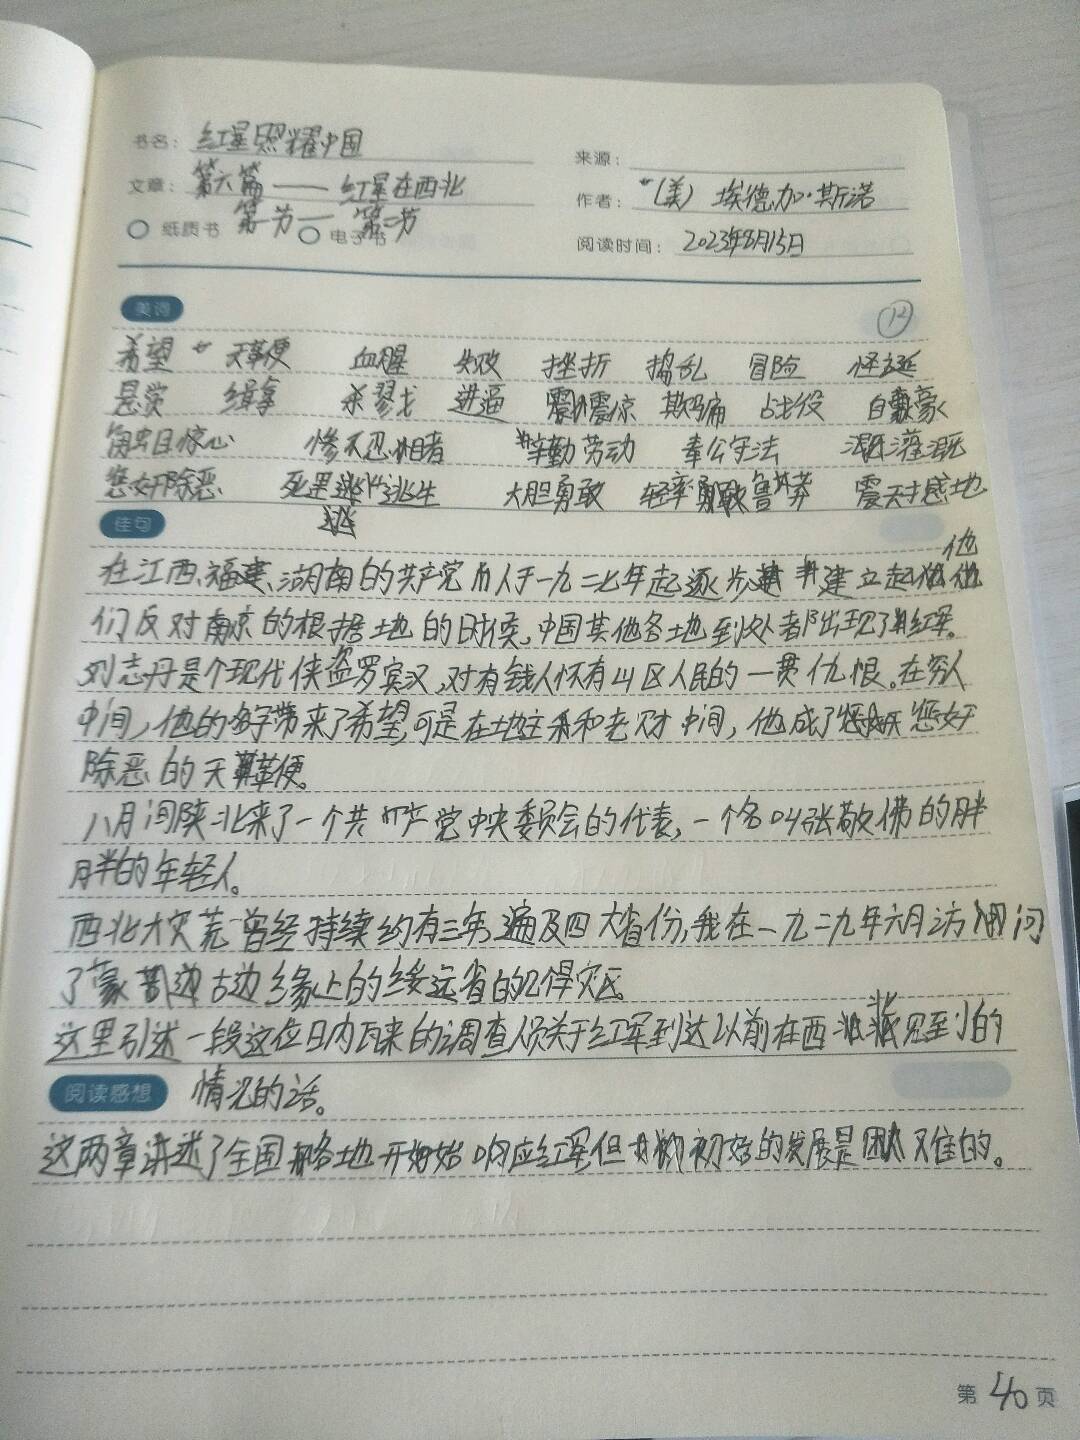 书名：红星照耀中国
来源：
文章：第六篇——红星在西北
作者：(美) 埃德加·斯诺
纸质书 第一节— 电子书 第二节
阅读时间：2023年8月15日
美词
12
希望 天鞭 血腥 失败 挫折 捣乱 冒险 怪诞
悬赏 缉拿 杀戮 进逼 震惊 斯巴 战役 自豪
触目惊心 惨不忍睹 辛勤劳动 奉公守法 灌溉
惩奸除恶 死里逃生 大胆勇敢 轻率鲁莽 震天撼地
逃
佳句
他
在江西、福建、湖南的共产党人于一九二七年起逐步建立起他
们反对南京的根据地的时候，中国其他各地到处都出现了红军。
刘志丹是个现代侠盗罗宾汉，对有钱人怀有山区人民的一贯仇恨。在穷人
中间，他的名字带来了希望，可是在地主和老财中间，他成了惩奸
除恶的天鞭。
八月间陕北来了一个共产党中央委员会的代表，一个名叫张敬佛的胖
胖的年轻人。
西北大灾荒曾经持续约有三年，遍及四大省份，我在一九二九年六月访问
了蒙古边缘上的绥远省的灾区
这里引述一段这位日内瓦来的调查人员关于红军到达以前在西北见到的
阅读感想 情况的话。
这两章讲述了全国各地开始响应红军但初始的发展是困难的。
第 40 页